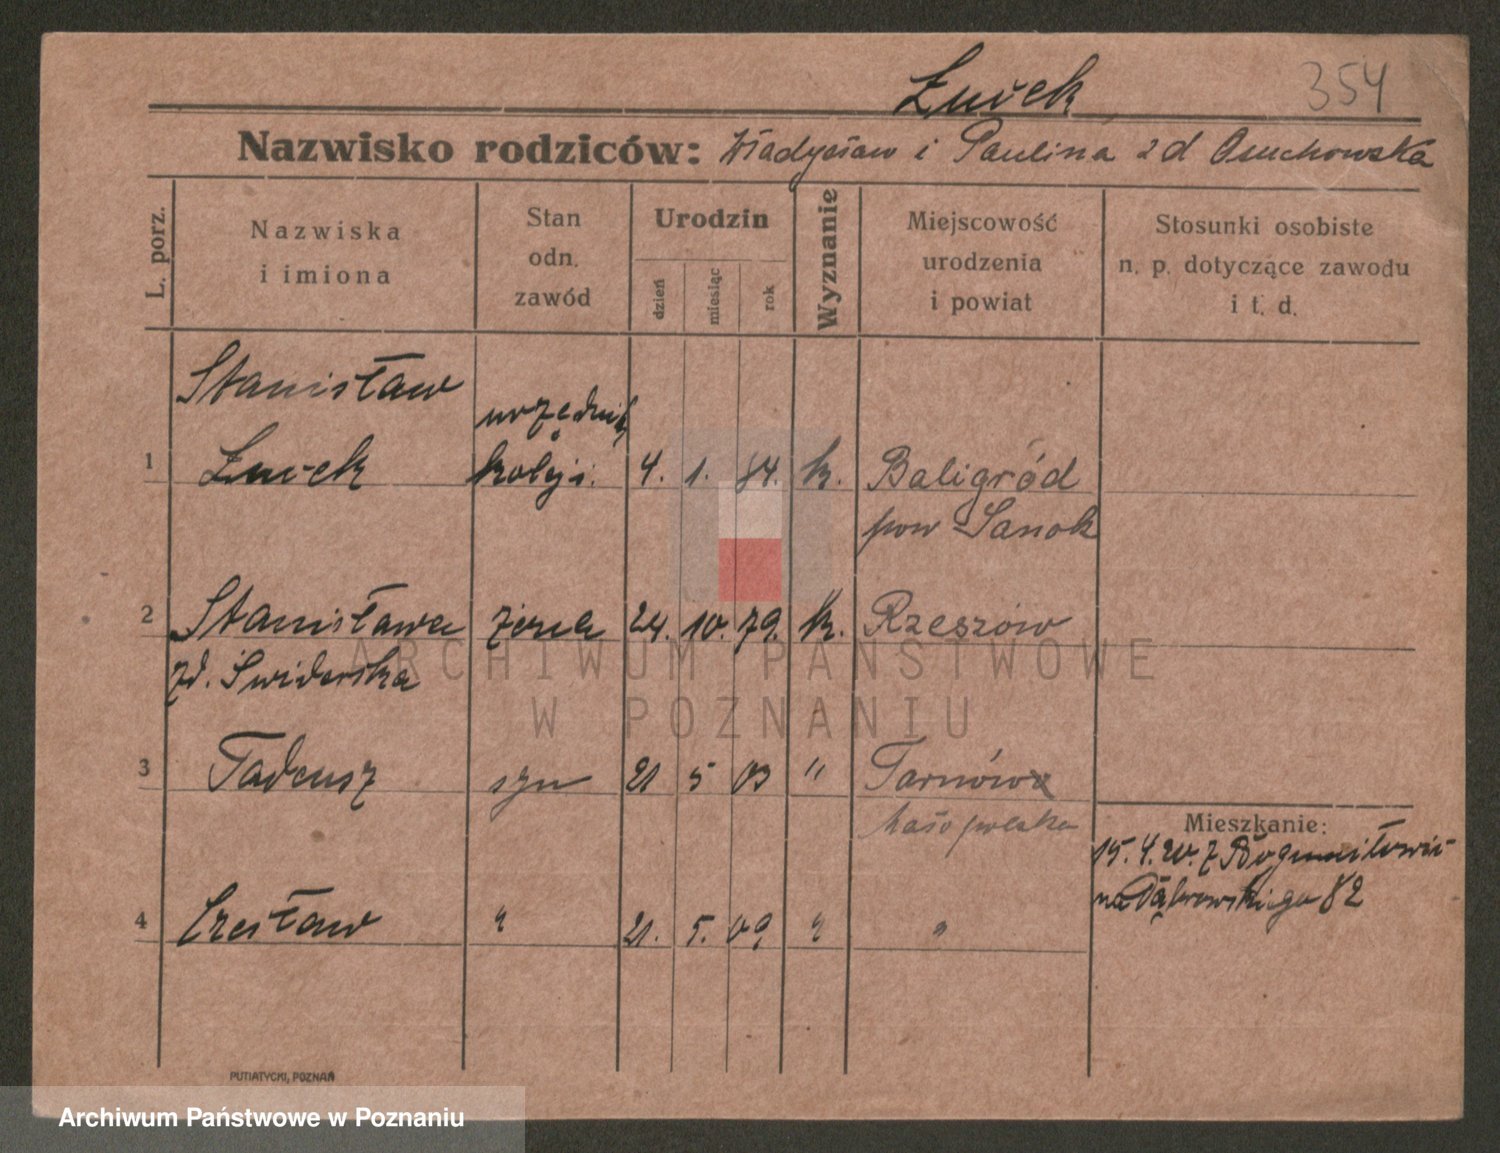 Łucek 354
Nazwisko rodziców: Władysław i Paulina zd Osuchowska
L. porz.
Nazwiska
i imiona
Stan
odn.
zawód
Urodzin
dzień
miesiąc
rok
Wyznanie
Miejscowość
urodzenia
i powiat
Stosunki osobiste
n. p. dotyczące zawodu
i t. d.
Stanisław
urzędnik
1 Łucek kolej. 4. 1. 84. k. Baligród
pow Sanok
2 Stanisława żona 24. 10. 79. k. Rzeszów
zd. Świderska
3 Tadeusz syn 21 5 03 " Tarnów
Małopolska
4 Czesław " 21. 5. 09 " "
Mieszkanie:
15. 4. 20. z
na Dąbrowskiego 82
PUTIATYCKI, POZNAŃ
ARCHIWUM PAŃSTWOWE
W POZNANIU
Archiwum Państwowe w Poznaniu